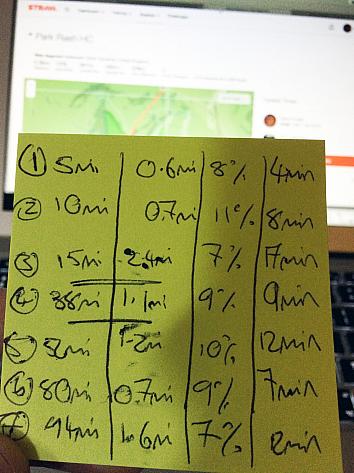 STRAVA
Park Rash HC
① 5mi 0.6mi 8% 4min
② 10mi 0.7mi 11% 8min
③ 15mi 2.4mi 7% 17min
④ 38mi 1.1mi 9% 9min
⑤ 52mi 1.2mi 10% 12min
⑥ 80mi 0.7mi 9% 7min
⑦ 94mi 1.6mi 7%